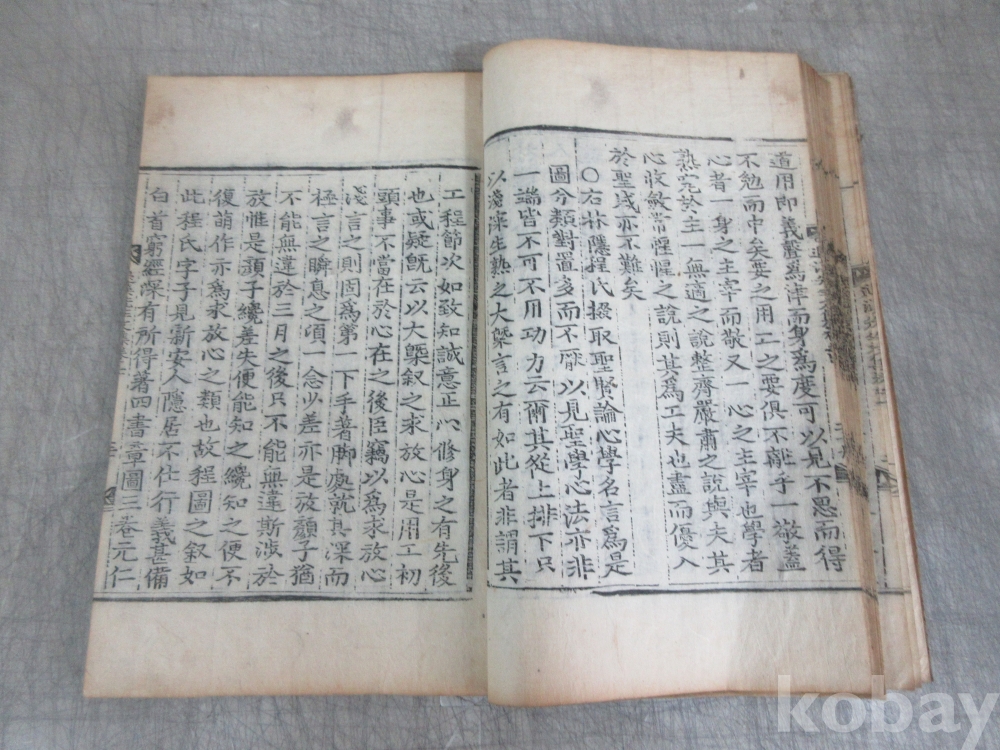 道用即義聲爲津而身爲度可以見不思而得
不勉而中矣要之用工之要俱不離乎一敬蓋
心者一身之主宰而敬又一心之主宰也學者
熟究於主一無適之說整齊嚴肅之說與夫其
心收斂常惺惺之說則其爲工夫也盡而優入
於聖域亦不難矣
○右林隱程氏掇取聖賢論心學名言爲是
圖分類對置多而不厭以見聖學心法亦非
一端皆不可不用功力云爾其從上排下只
以淺深生熟之大槩言之有如此者非謂其
工程節次如致知誠意正心修身之有先後
也或疑旣云以大槩叙之求放心是用工初
頭事不當在於心在之後臣竊以爲求放心
淺言之則固爲第一下手著脚處就其深而
極言之瞬息之頃一念少差亦是放顔子猶
不能無違於三月之後只不能無違斯涉於
放惟是顔子纔差失便能知之纔知之便不
復萌作亦爲求放心之類也故程圖之叙如
此程氏字子見新安人隱居不仕行義甚備
白首窮經深有所得著四書章圖三卷元仁
kobay